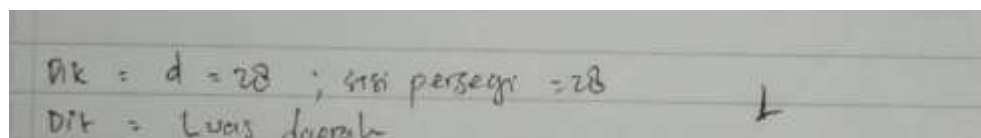 Dik = d = 28 ; sisi persegi = 28
L
Dit = Luas daerah